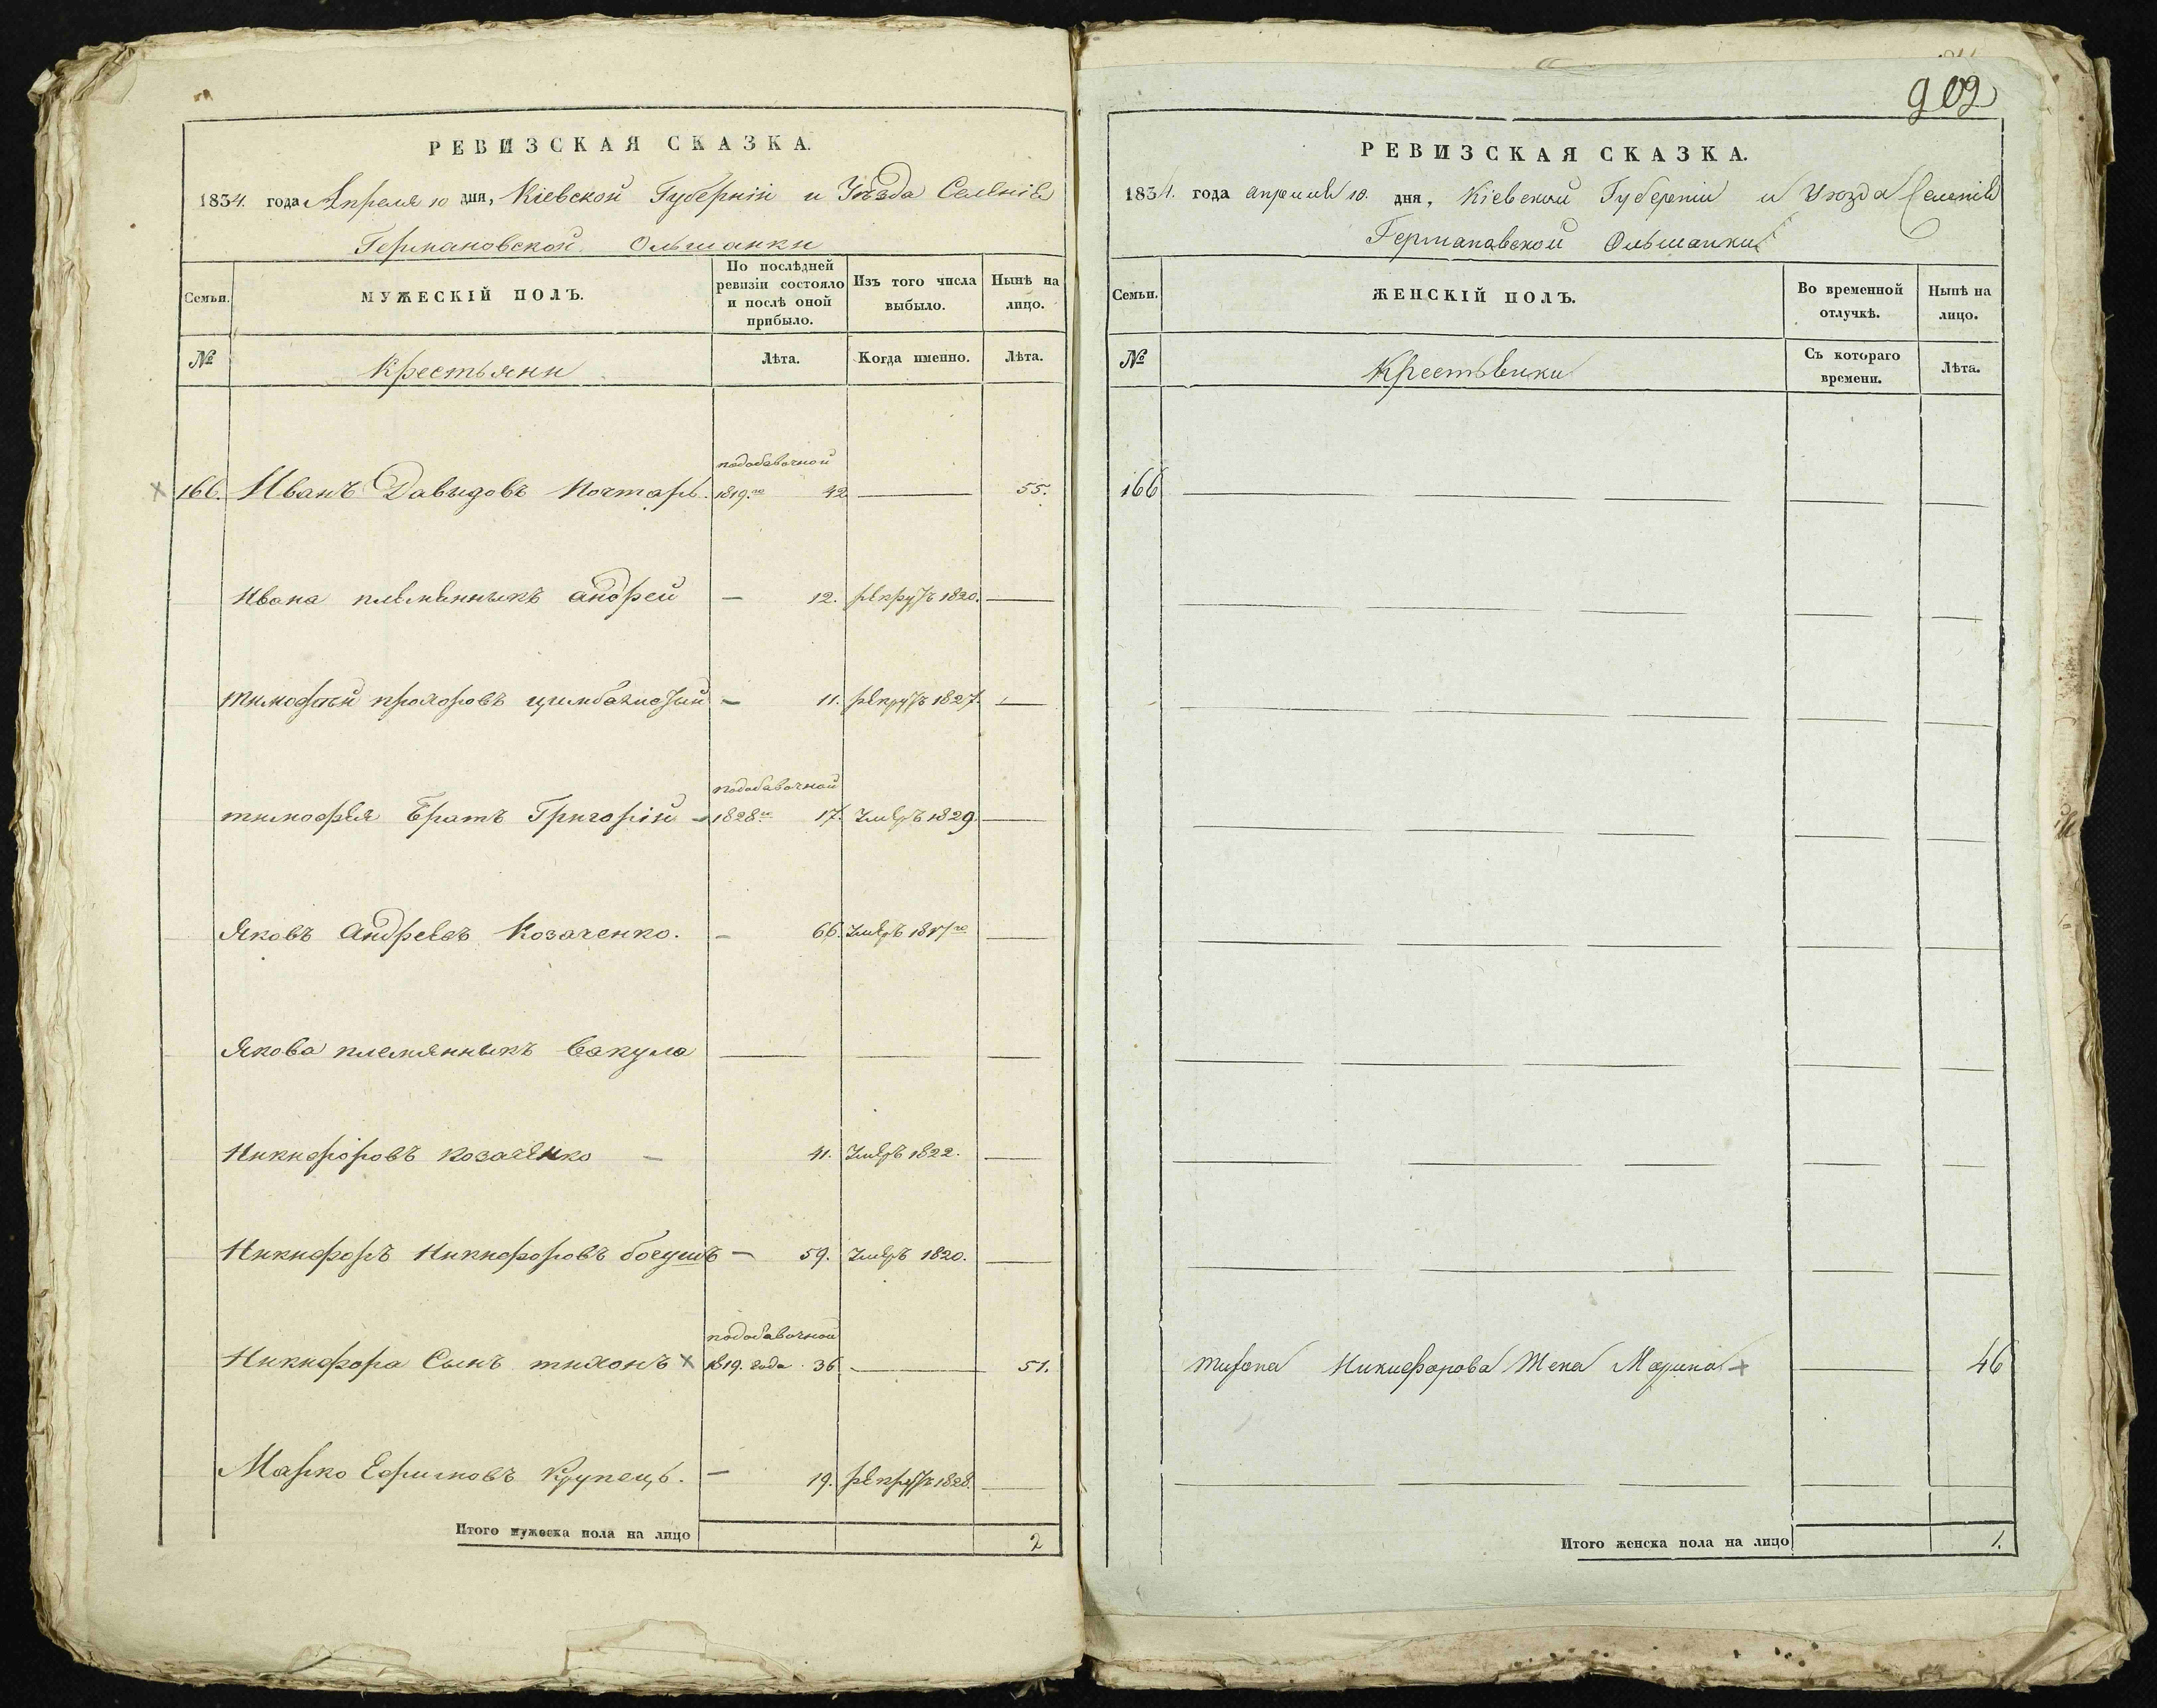 РЕВИЗСКАЯ СКАЗКА.
1834. года Апреля 10 дня, Кіевской Губерніи и Уѣзда Селенія
Германовской Ольшанки
Семьи.
МУЖЕСКІЙ ПОЛЪ.
По послѣдней ревизіи состояло и послѣ оной прибыло.
Изъ того числа выбыло.
Нынѣ на лицо.
№
Крестьяни
Лѣта.
Когда именно.
Лѣта.
подобавочной
166. Иванъ Давыдовъ Почтарь. 1819.го 42 55.
Ивана племянныкъ андрей — 12. рекрутъ 1820.
тимофѣй прохоровъ — 11. рекрутъ 1827.
подобавочной
тимофея братъ Григорій 1828го 17. Умеръ 1829.
Яковъ андреевъ Козаченко. — 66. Умеръ
Якова племянныкъ вакула
Никифоровъ козаченко — 41. Умеръ 1822.
Никифоръ Никифоровъ — 59. Умеръ 1820.
подобавочной
Никифора Сынъ тихонъ х 1819. года 36 51.
Марко Ефимовъ Крупець. — 19. рекрутъ 1828.
Итого мужеска пола на лицо 2
902
РЕВИЗСКАЯ СКАЗКА.
1834. года апреля 10. дня, Кіевской Губерніи и Уѣзда Селенія
Германовской Ольшанки
Семьи.
ЖЕНСКІЙ ПОЛЪ.
Во временной отлучкѣ.
Нынѣ на лицо.
№
Крестьянки
Съ котораго времени.
Лѣта.
166
Никифорова Жена Марина 46
Итого женска пола на лицо 1.